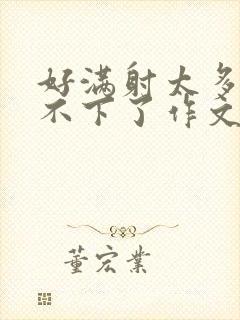 好满射太多
不下了作文
董宏業